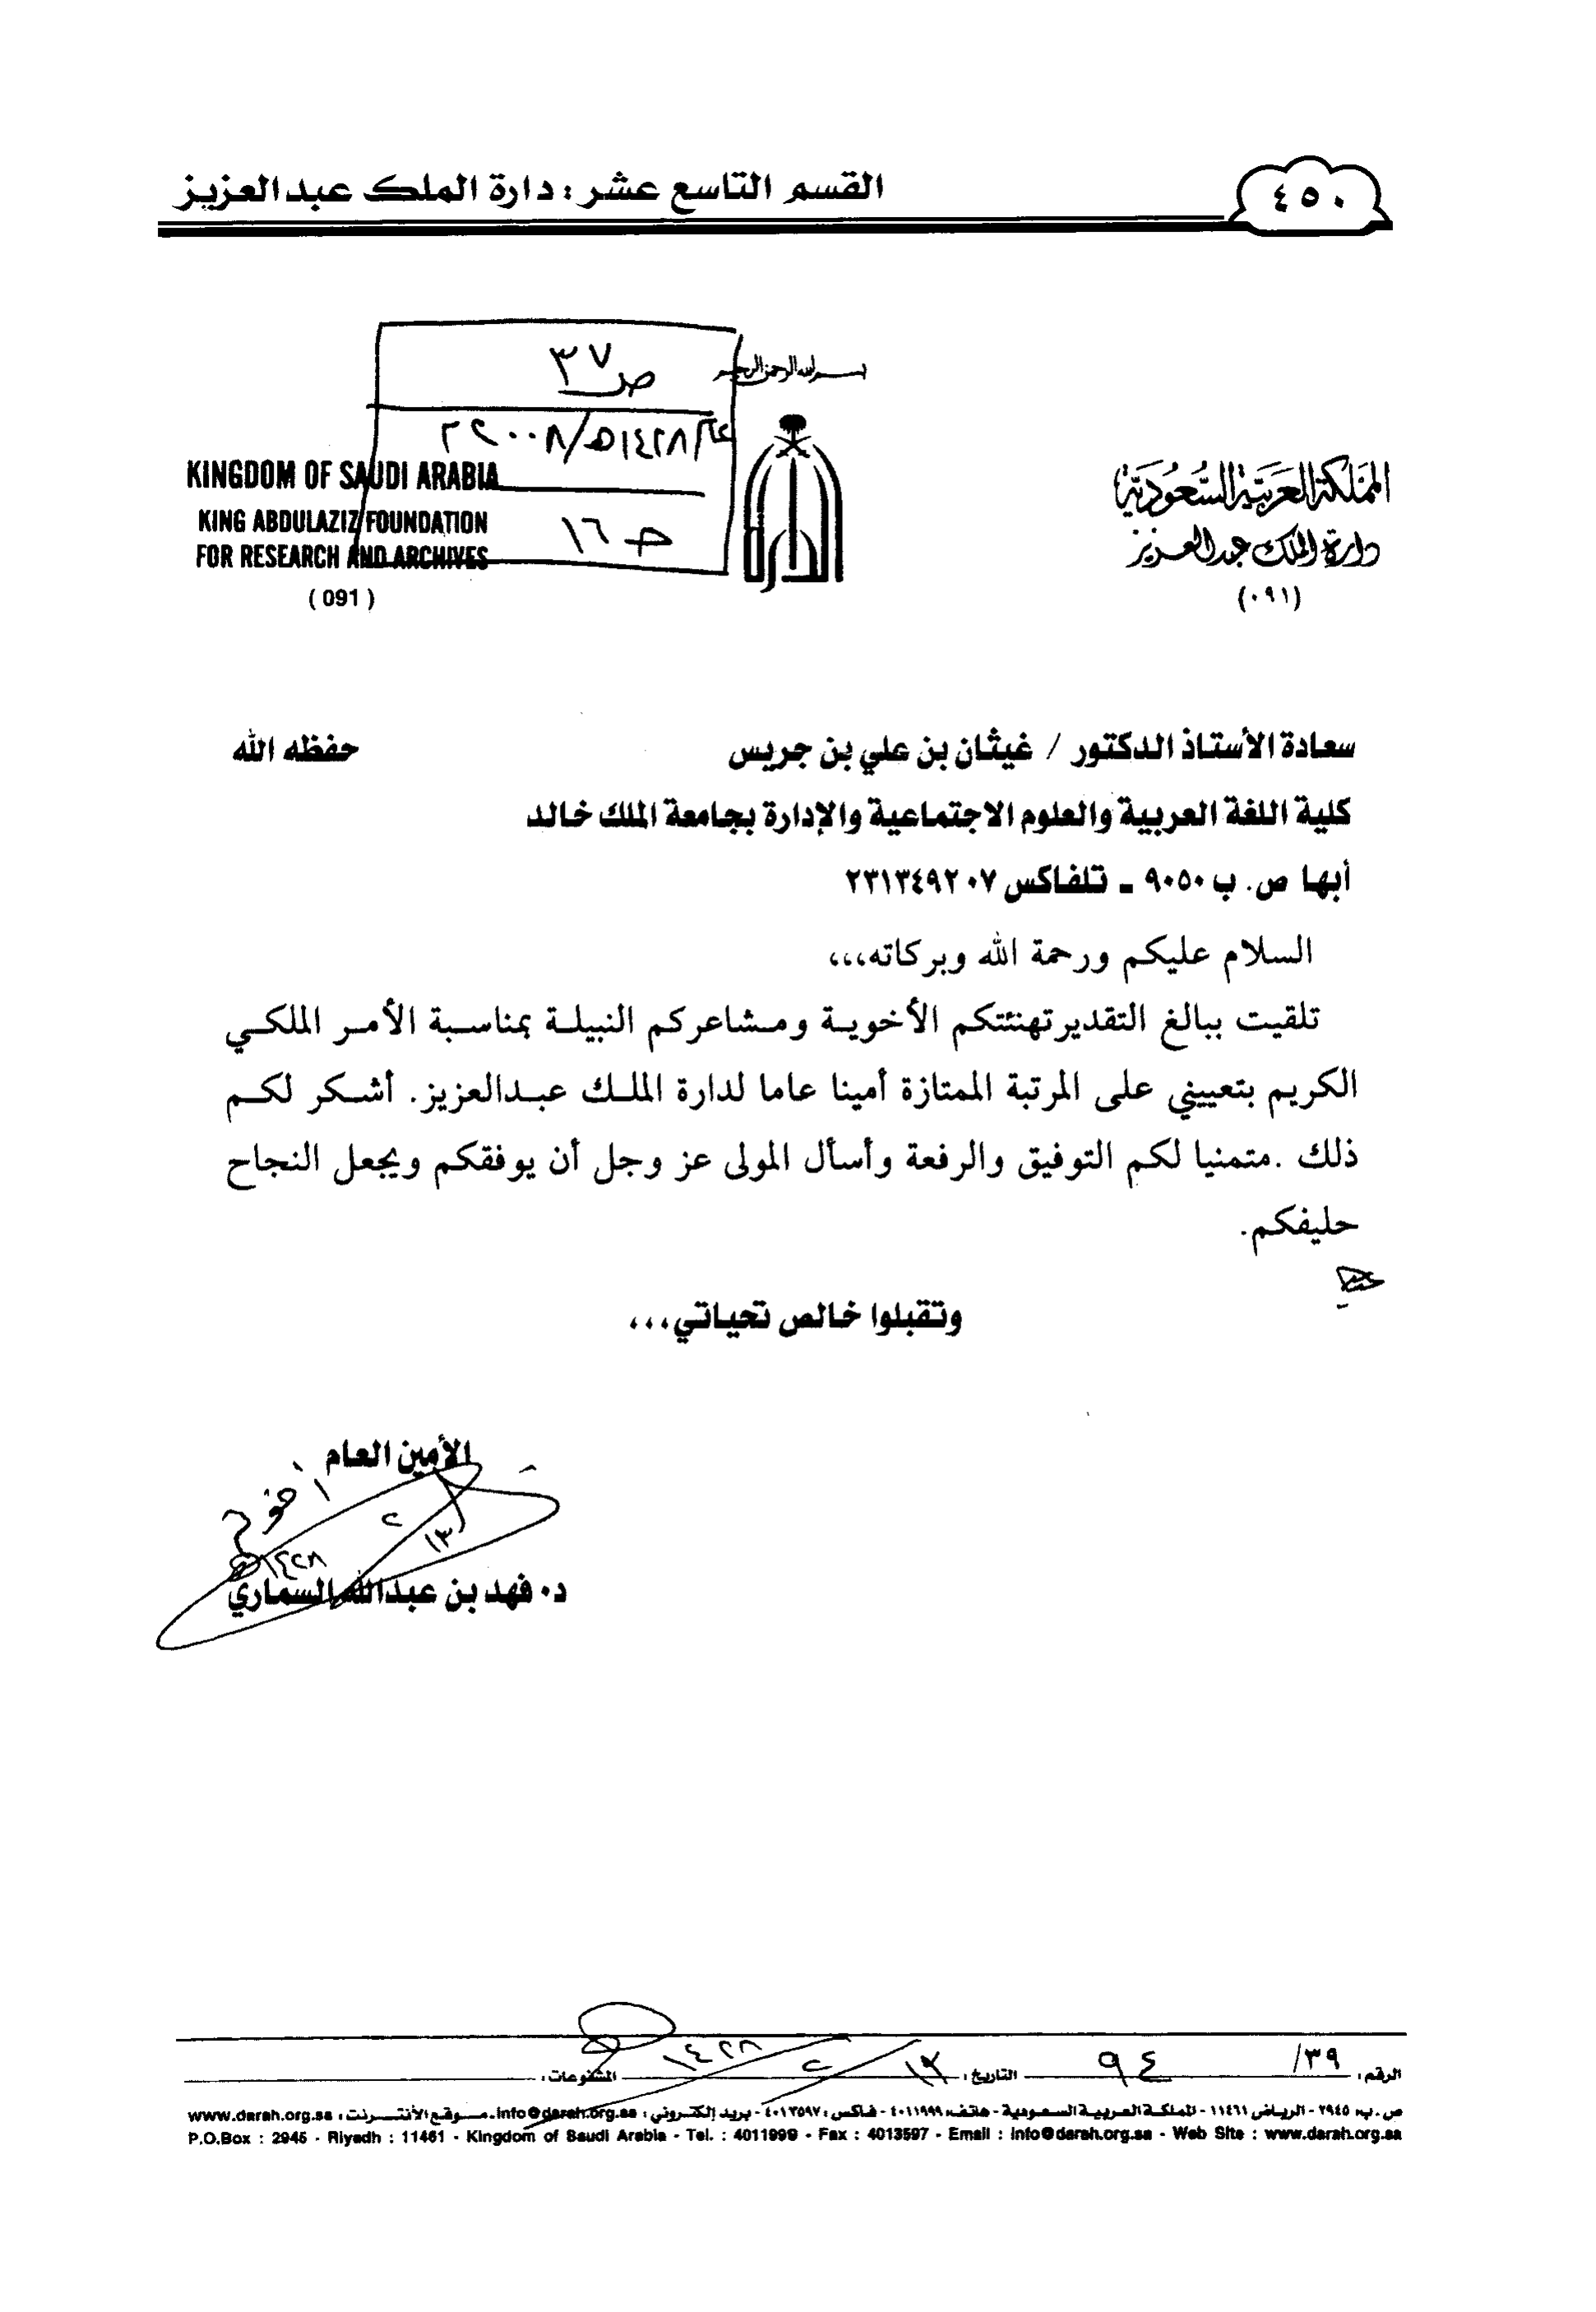 القسم التاسع عشر : دارة الملك عبدالعزيز
٤٥٠
بسم الله الرحمن الرحيم
ص ٣٧
١٤٢٨هـ/٢٠٠٨
ج ١٦
المملكة العربية السعودية
دارة الملك عبد العزيز
(٠٩١)
KINGDOM OF SAUDI ARABIA
KING ABDULAZIZ FOUNDATION
FOR RESEARCH AND ARCHIVES
( 091 )
سعادة الأستاذ الدكتور / غيثان بن علي بن جريس حفظه الله
كلية اللغة العربية والعلوم الاجتماعية والإدارة بجامعة الملك خالد
أبها ص. ب ٩٠٥٠ ـ تلفاكس ٢٣١٣٤٩٢٠٧
السلام عليكم ورحمة الله وبركاته،،،
تلقيت ببالغ التقدير تهنئتكم الأخوية ومشاعركم النبيلة بمناسبة الأمر الملكي
الكريم بتعييني على المرتبة الممتازة أمينا عاما لدارة الملك عبدالعزيز. أشكر لكم
ذلك .متمنيا لكم التوفيق والرفعة وأسأل المولى عز وجل أن يوفقكم ويجعل النجاح
حليفكم.
وتقبلوا خالص تحياتي،،،
الأمين العام
أخوكم
١٣/٢
١٤٢٨هـ
د. فهد بن عبدالله السماري
الرقم : ٣٩/ ٩٤ التاريخ : /٢/١٤٢٨هـ المشفوعات :
ص.ب: ٢٩٤٥ - الرياض ١١٤٦١ - المملكة العربية السعودية - هاتف: ٤٠١١٩٩٩ - فاكس : ٤٠١٣٥٩٧ - بريد إلكتروني : info@darah.org.sa - موقع الأنترنت : www.darah.org.sa
P.O.Box : 2945 - Riyadh : 11461 - Kingdom of Saudi Arabia - Tel. : 4011999 - Fax : 4013597 - Email : info@darah.org.sa - Web Site : www.darah.org.sa